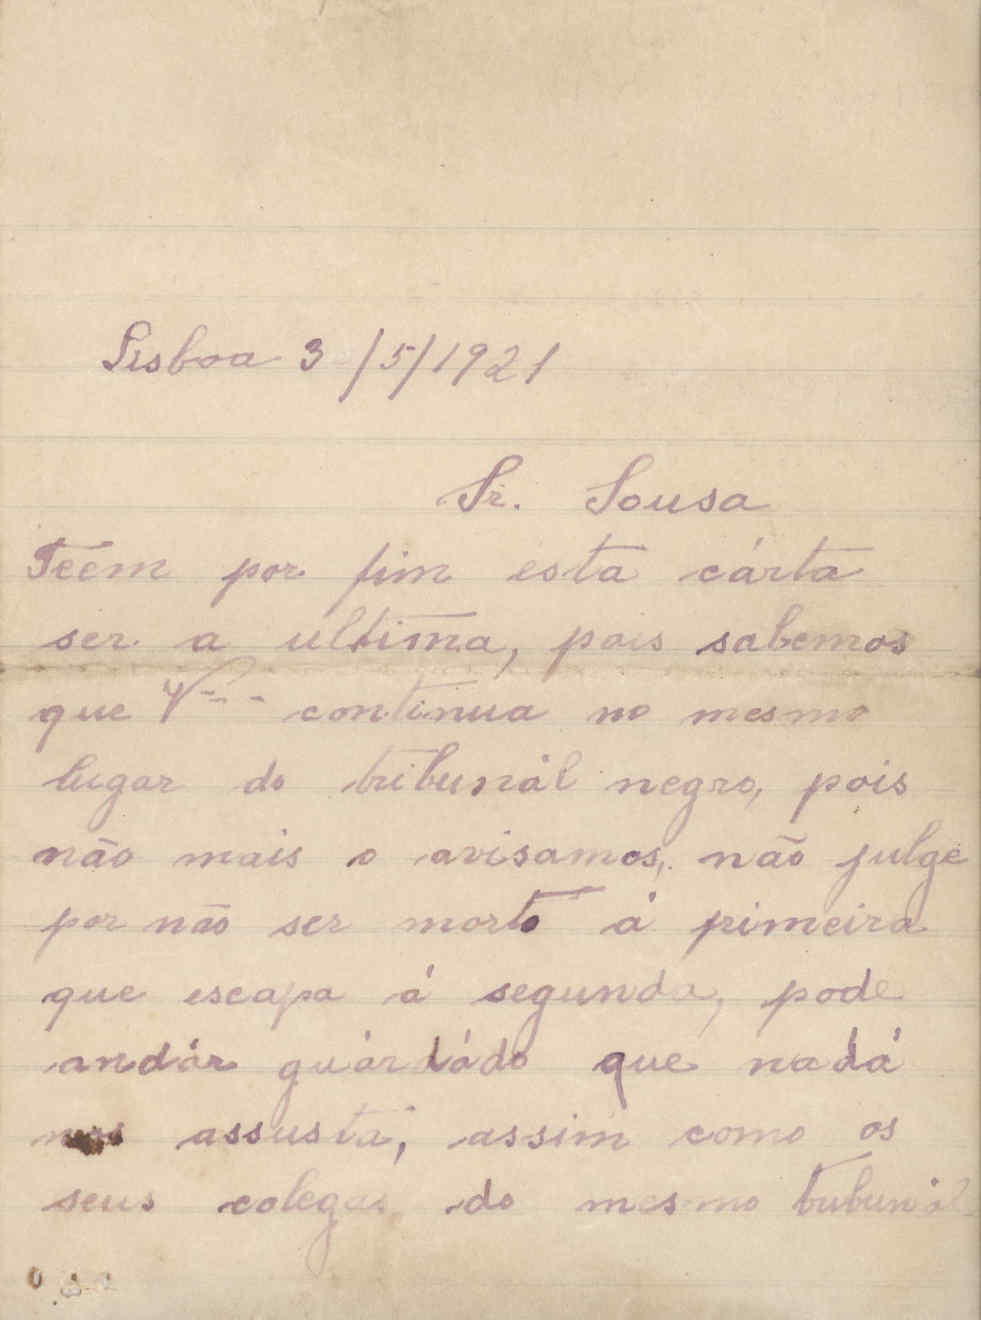 Lisboa 3/5/1921
Sr. Sousa
Teem por fim esta cárta
ser a ultima, pois sabemos
que V--- continua no mesmo
lugar do tribunál negro, pois
não mais o avisamos, não julge
por não ser morto á primeira
que escapa á segunda, pode
andár guárdádo que nádá
nos assusta, assim como os
seus colegas do mesmo tribunál